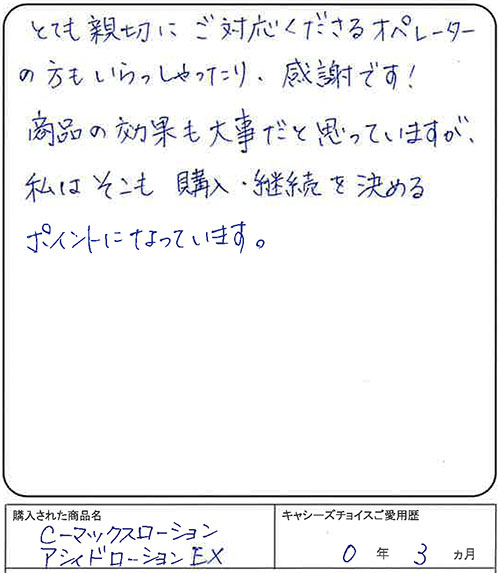 とても親切にご対応くださるオペレーター
の方もいらっしゃったり、感謝です！
商品の効果も大事だと思っていますが、
私はそこも購入・継続を決める
ポイントになっています。
購入された商品名
C-マックスローション
アシィドローションEX
キャシーズチョイスご愛用歴
0 年 3 ヵ月